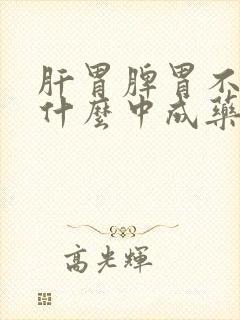 肝胃脾胃不
什麽中成藥
高光輝